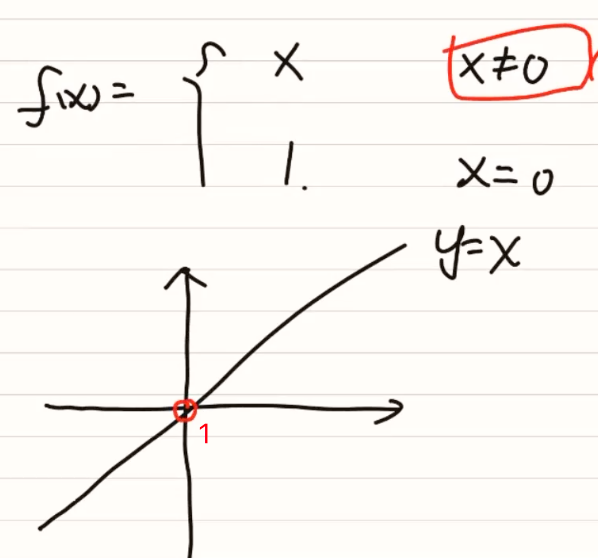 f(x) = { x x≠0
1. x=0
y=x
1